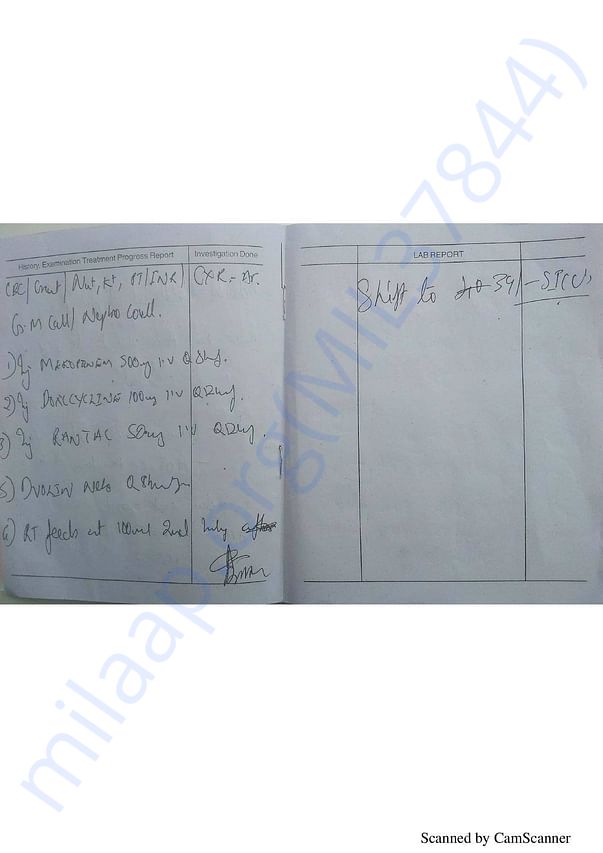 History, Examination Treatment Progress Report
Investigation Done
CBC/ Creat / Na+, K+, PT/INR/
CXR -
G.M Call/ Nephro Call.
1) Inj MEROPENEM 500mg IV Q8hrly.
2) Inj DOXCYCLINE 100mg IV Q12hrly.
3) Inj RANTAC 50mg IV Q12hrly.
5) DUOLIN Nebs Q8hrly
6) RT feeds at 100ml 2nd hrly
LAB REPORT
Shift to 34/ - SICU
milaap.org(MIL37844)
Scanned by CamScanner